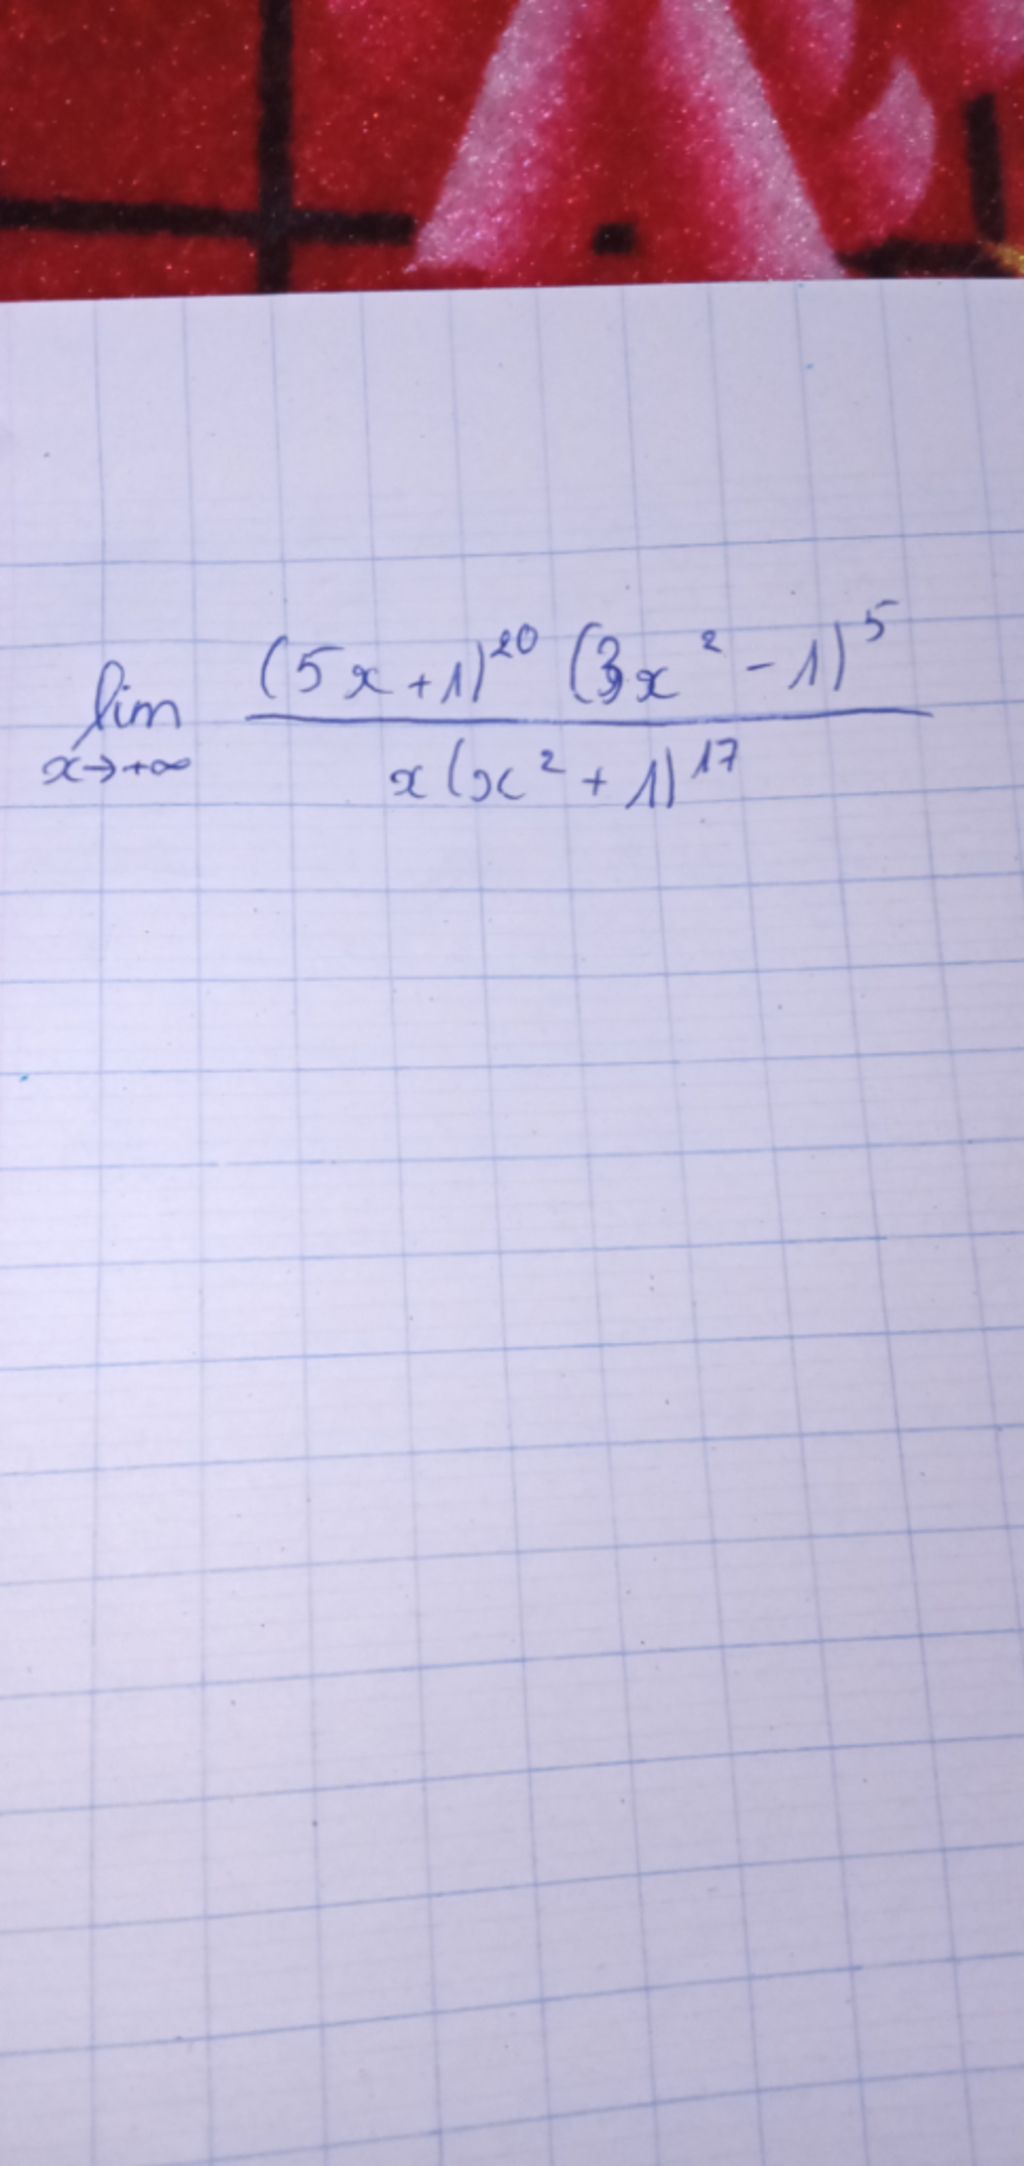 lim x→+∞ (5x+1)^20 (3x^2-1)^5 / x(x^2+1)^17